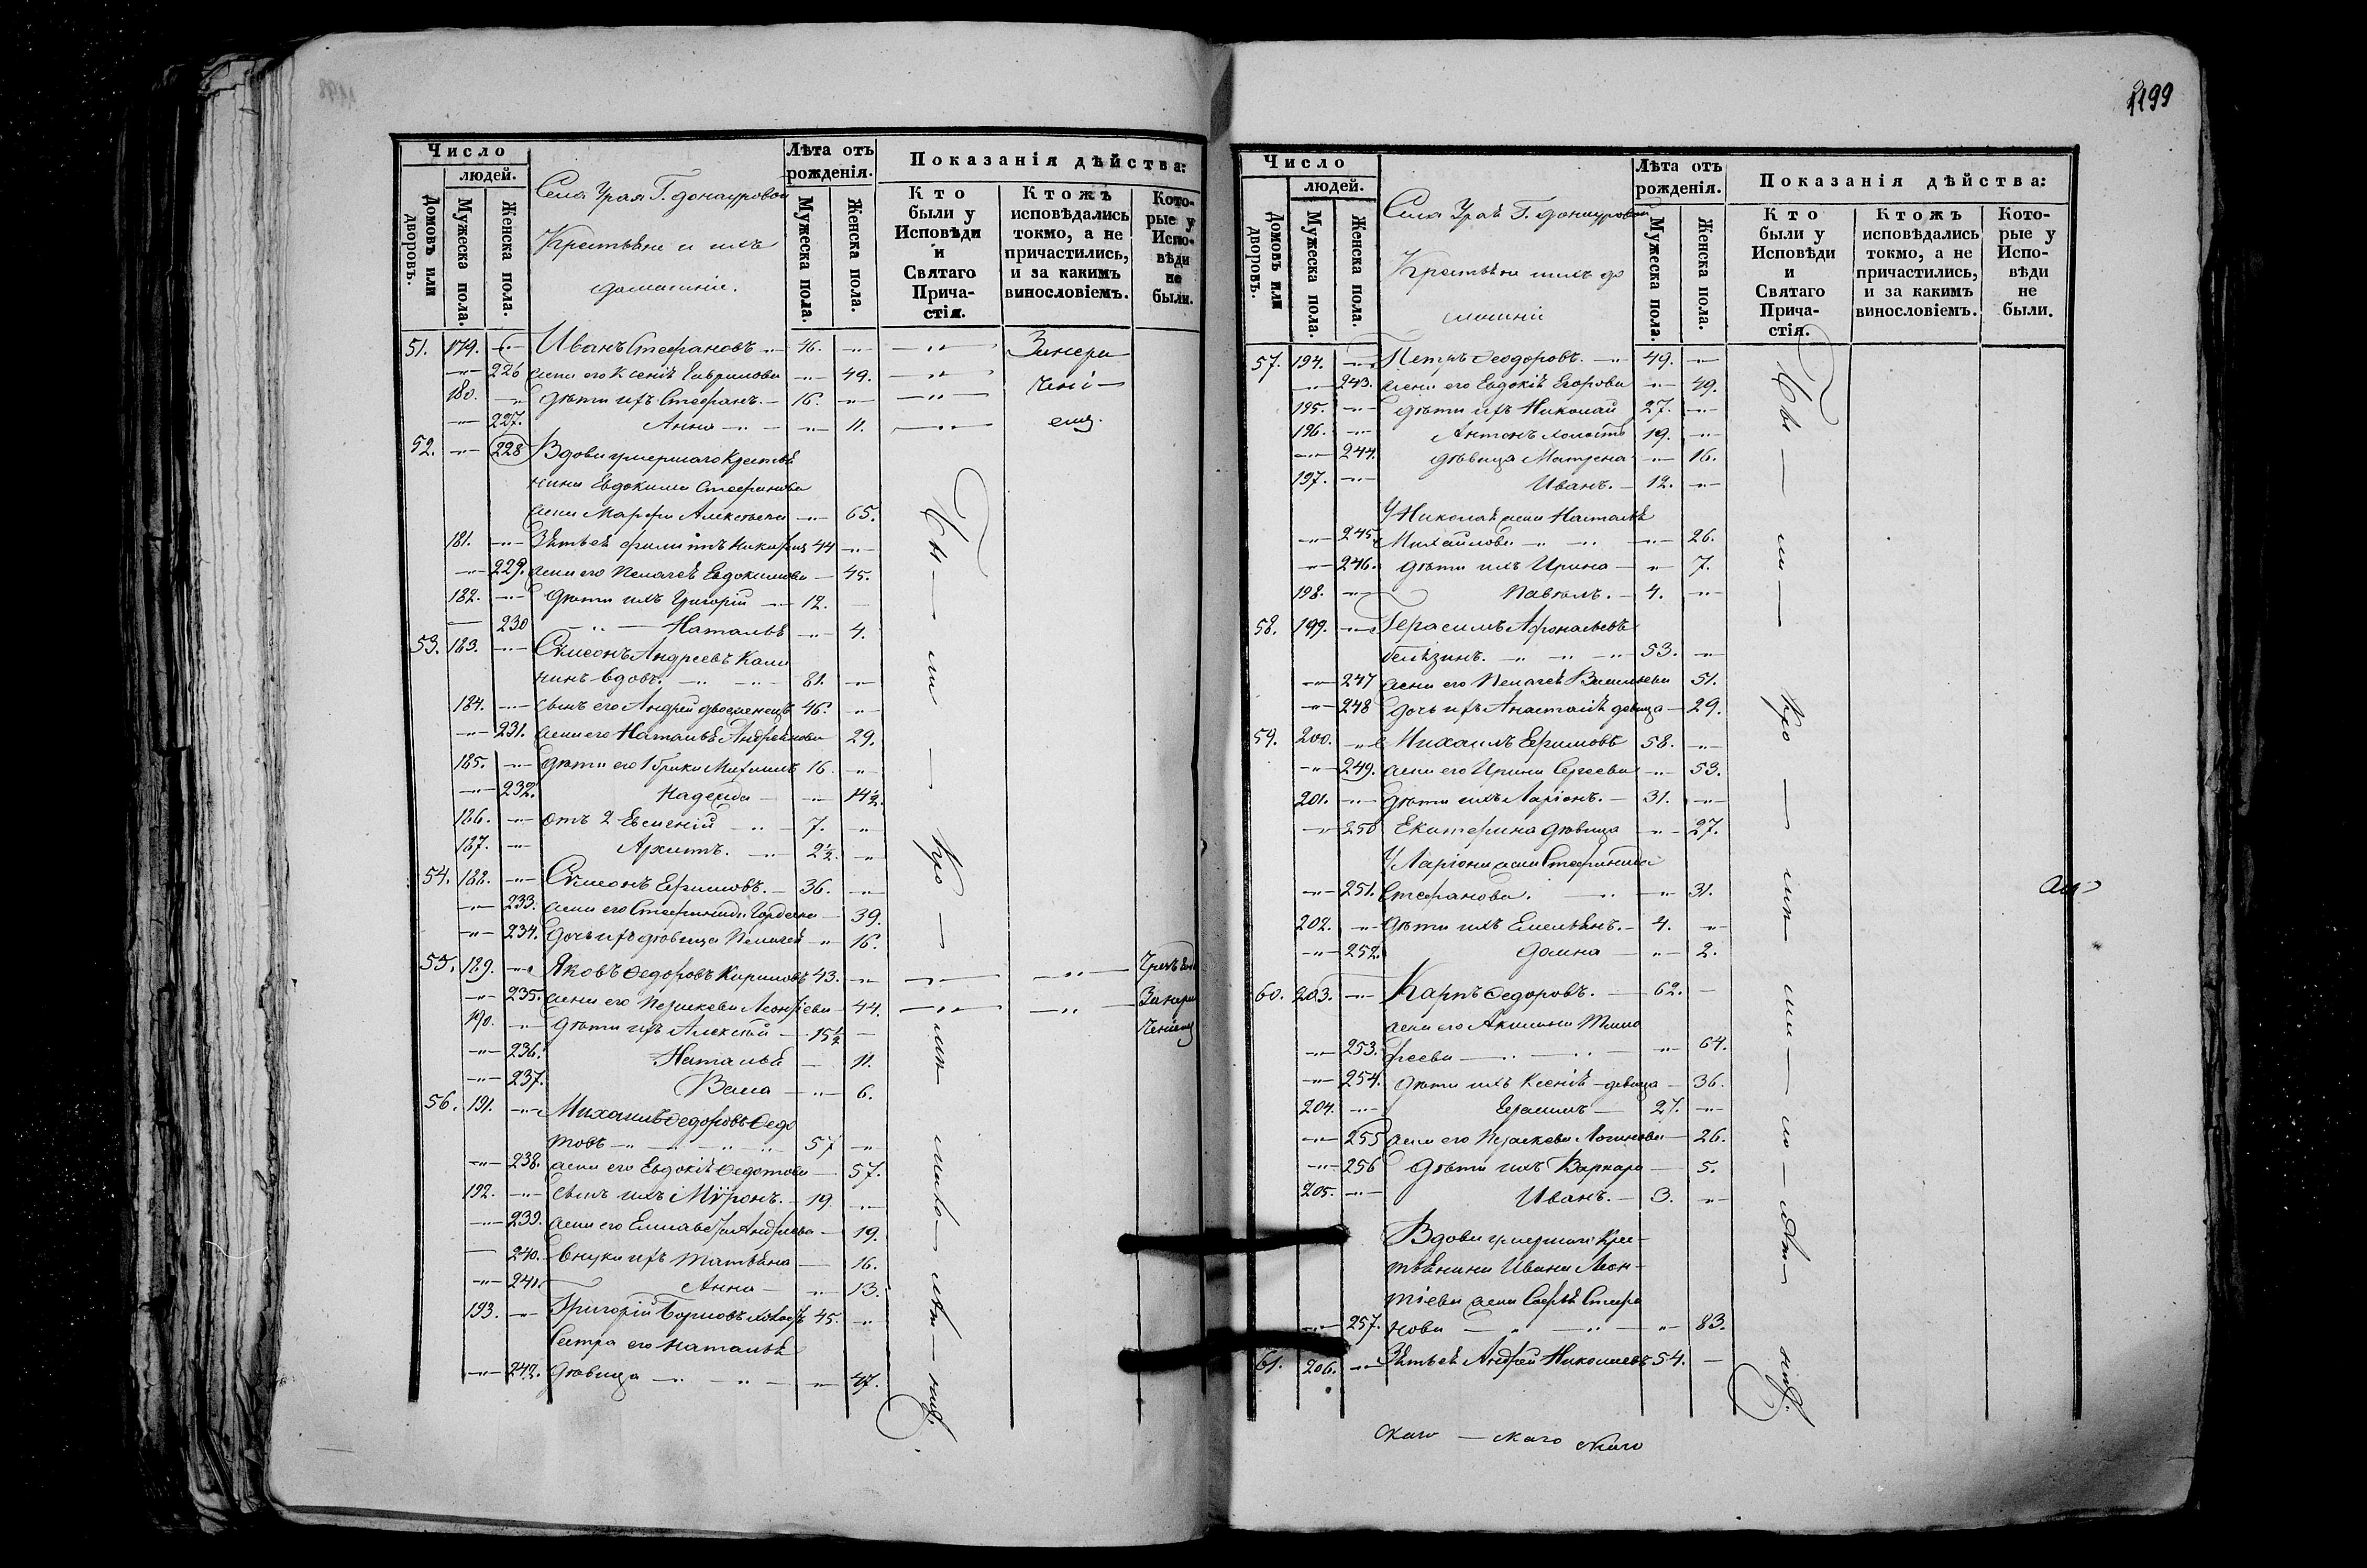 Число
людей.
Домовъ или дворовъ.
Мужеска пола.
Женска пола.
Села Урая Г. Донауровой
Крестьяне и ихъ
домашніе.
Лѣта отъ рожденія.
Мужеска пола.
Женска пола.
Показанія дѣйства:
Кто были у Исповѣди и Святаго Причастія.
Ктожъ исповѣдались токмо, а не причастились, и за какимъ винословіемъ.
Которые у Исповѣди не были.
51. 179. Иванъ Стефановъ 46.
226 жена его Ксенія Гаврилова 49.
180. дѣти ихъ Стефанъ 16.
227. Анна 11.
52. 228 Вдова умершаго Крестья
нина Евдокима Стефанова
жена Марфа Алексѣева 65.
181. Зять ея Филиппъ 44
229. жена его Пелагея Евдокимова 45.
182. дѣти ихъ Григорій 12.
230 Наталья 4.
53. 183. Симеонъ Андреевъ Кали
нинъ вдовъ. 81.
184. сынъ его Андрей двоеженецъ 46.
231. жена его Наталья 29.
185. дѣти его 1 брака Михаилъ 16.
232. Надежда 14½.
186. отъ 2 Евгеній 7.
187. Архипъ. 2½.
54. 188. Симеонъ Ефимовъ. 36.
233. жена его Стефанида Гордеева 39.
234. Дочь ихъ дѣвица Пелагея 16.
55. 189. Яковъ Федоровъ Кириловъ 43.
235. жена его Параскева Леонтіева 44.
190. дѣти ихъ Алексѣй 15½
236. Наталья 11.
237. Васса 6.
56. 191. Михаилъ Федоровъ Федо
товъ 57
238. жена его Евдокія Федотова 57.
192. сынъ ихъ Мѵронъ. 19.
239. жена его Елисавета Андреева 19.
240. Внуки ихъ Татьяна 16.
241. Анна 13.
193. Григорій 45.
Сестра его Наталья
242. дѣвица 47.
1199
Число
людей.
Домовъ или дворовъ.
Мужеска пола.
Женска пола.
Села Урая Г. Донауровой
Крестьяне и ихъ до
машніе
Лѣта отъ рожденія.
Мужеска пола.
Женска пола.
Показанія дѣйства:
Кто были у Исповѣди и Святаго Причастія.
Ктожъ исповѣдались токмо, а не причастились, и за какимъ винословіемъ.
Которые у Исповѣди не были.
57. 194. Петръ Феодоровъ. 49.
243. жена его Евдокія Егорова 49.
195. дѣти ихъ Николай 27.
196. Антонъ холостъ 19.
244. дѣвица Матрена 16.
197. Иванъ. 12.
У Николая жена Наталья
245. Михайлова 26.
246. дѣти ихъ Ирина 7.
198. Павелъ. 4.
58. 199. Герасимъ Афонасьевъ
53.
247 жена его Пелагея Васильева 51.
248 дочь ихъ Анастасія дѣвица 29.
59. 200. Михаилъ Ефимовъ 58.
249. жена его Ирина Сергеева 53.
201. дѣти ихъ Ларіонъ. 31.
250 Екатерина дѣвица 27.
У Ларіона жена Стефанида
251. Стефанова. 31.
202. дѣти ихъ Емельянъ. 4.
252. Домна 2.
60. 203. Карпъ Федоровъ. 62.
жена его Акилина Тимо
253. феева 64.
254. дѣти ихъ Ксенія дѣвица 36.
204. Герасимъ 27.
255 жена его Параскева Логинова 26.
256 дѣти ихъ Варвара 5.
205. Иванъ. 3.
Вдова умершаго Крес
тьянина Ивана Леон
тіева жена Софья Стефа
257. нова 83.
61. 206. Зять ея Андрей Николаевъ 54.
скаго скаго скаго